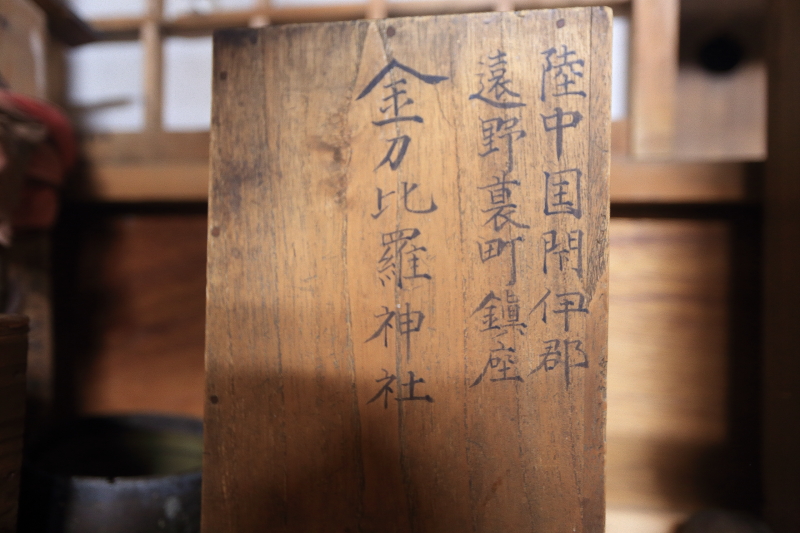 陸中国閇伊郡
遠野裏町鎮座
金刀比羅神社